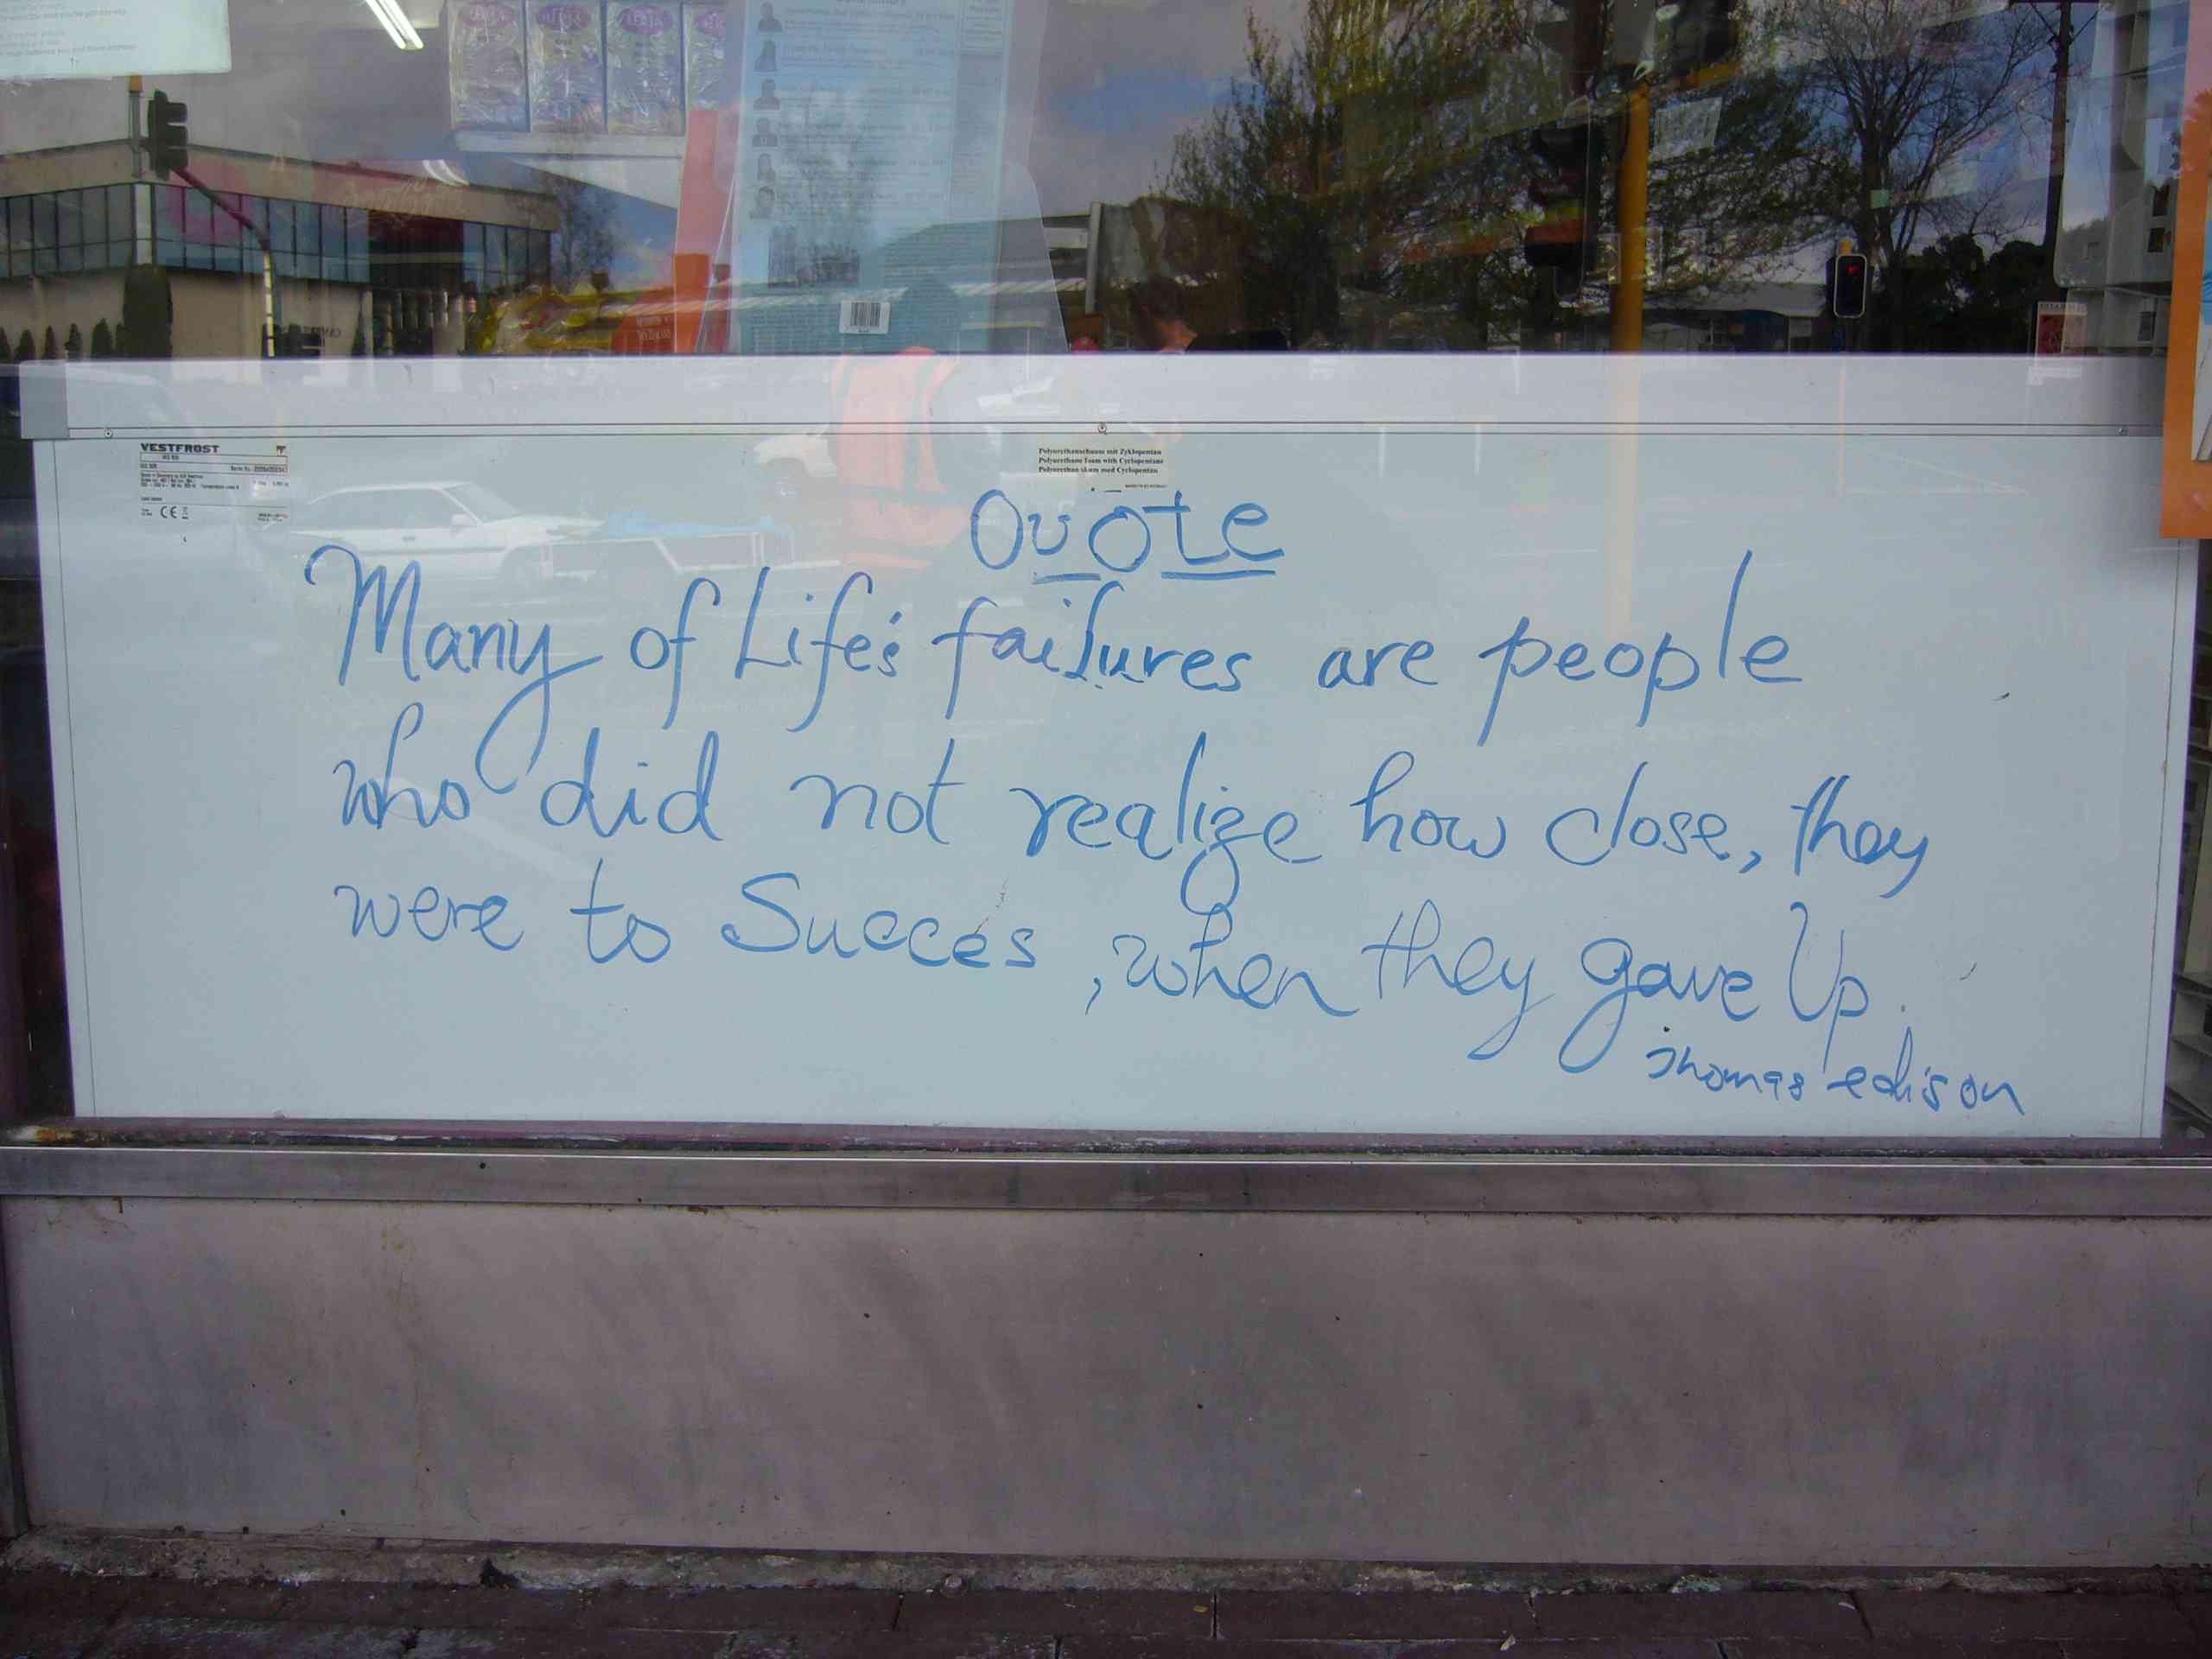 VESTFROST
CE
Polyurethanschaum mit Zyklopentan
Polyurethane foam with Cyclopentane
Polyurethan skum med Cyclopentan
Ouote
Many of Life's failures are people
who did not realize how close, they
were to Succes, when they gave Up.
Thomas edison